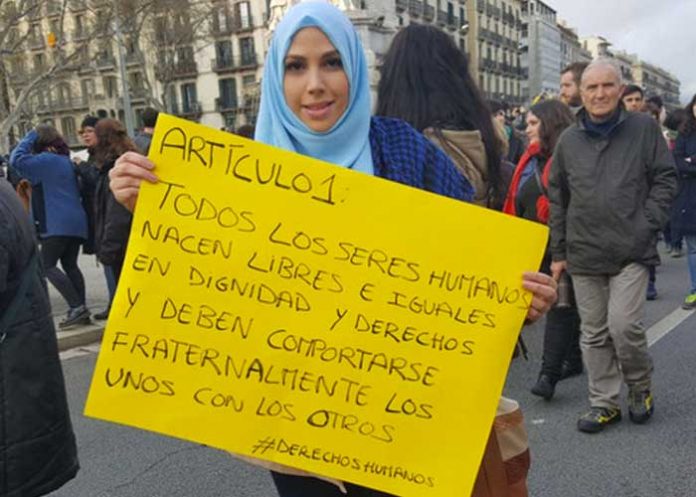 ARTÍCULO 1:
TODOS LOS SERES HUMANOS
NACEN LIBRES E IGUALES
EN DIGNIDAD Y DERECHOS
Y DEBEN COMPORTARSE
FRATERNALMENTE LOS
UNOS CON LOS OTROS
#DERECHOSHUMANOS